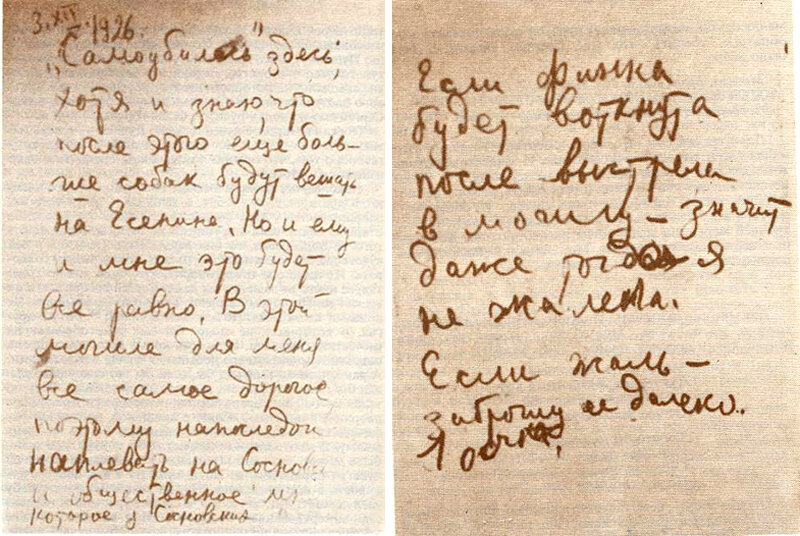 3. XII. 1926.
„Самоубилась" здесь,
хотя и знаю, что
после этого еще боль-
ше собак будут вешать
на Есенина. Но и ему
и мне это будет
все равно. В этой
могиле для меня
все самое дорогое,
поэтому напоследок
наплевать на Соснов
и общественное мн
которое у Сосновских
Если финка
будет воткнута
после выстрела
в могилу – значит
даже тогда я
не жалела.
Если жаль –
заброшу ее далеко.
1